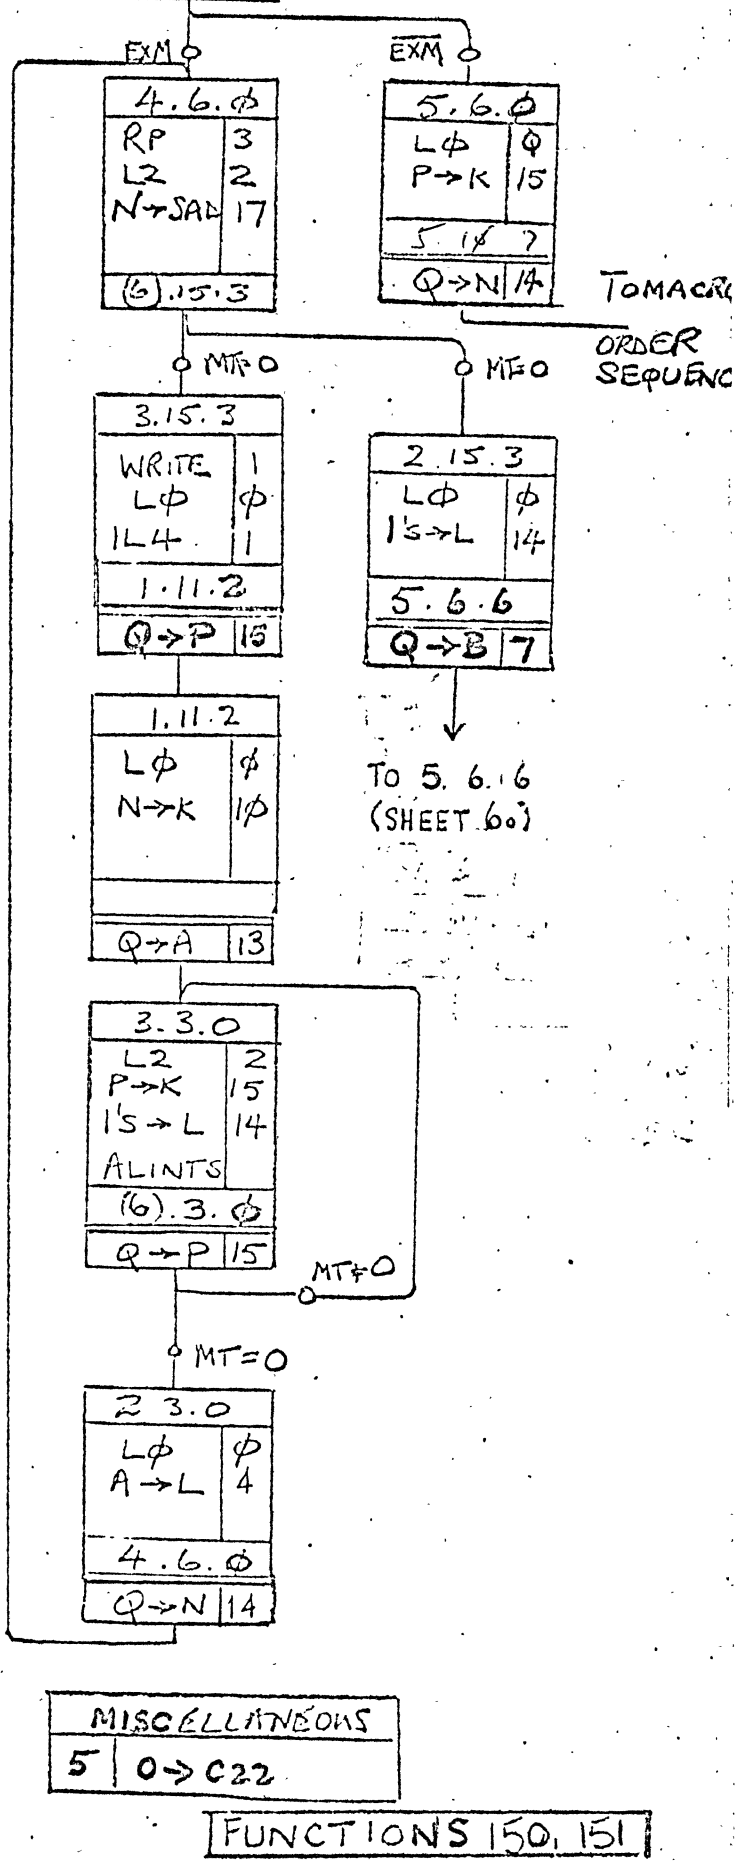 EXM
4.6.φ
RP 3
L2 2
N→SAD 17
(6).15.3
E̅X̅M̅
5.6.φ
Lφ φ
P→K 15
Q→N 14
TO MACRO
ORDER
SEQUENC
MT≠0
3.15.3
WRITE 1
Lφ φ
1L4 1
1.11.2
Q→P 15
MT=0
2.15.3
Lφ φ
1's→L 14
5.6.6
Q→B 7
TO 5.6.6
(SHEET 6.)
1.11.2
Lφ φ
N→K 1φ
Q→A 13
3.3.0
L2 2
P→K 15
1's→L 14
ALINTS
(6).3.φ
Q→P 15
MT≠0
MT=0
2 3.0
Lφ φ
A→L 4
4.6.φ
Q→N 14
MISCELLANEOUS
5 0→C22
FUNCTIONS 150, 151